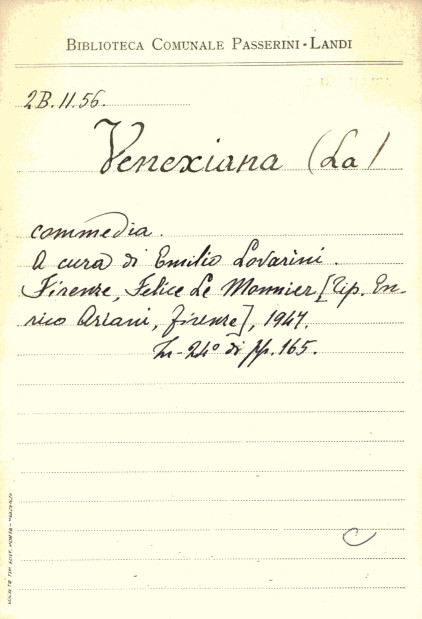 BIBLIOTECA COMUNALE PASSERINI-LANDI
2B.11.56.
Venexiana (La)
commedia.
A cura di Emilio Lovarini.
Firenze, Felice Le Monnier [Tip. En-
rico Ariani, Firenze], 1947.
In-24° di pp. 165.